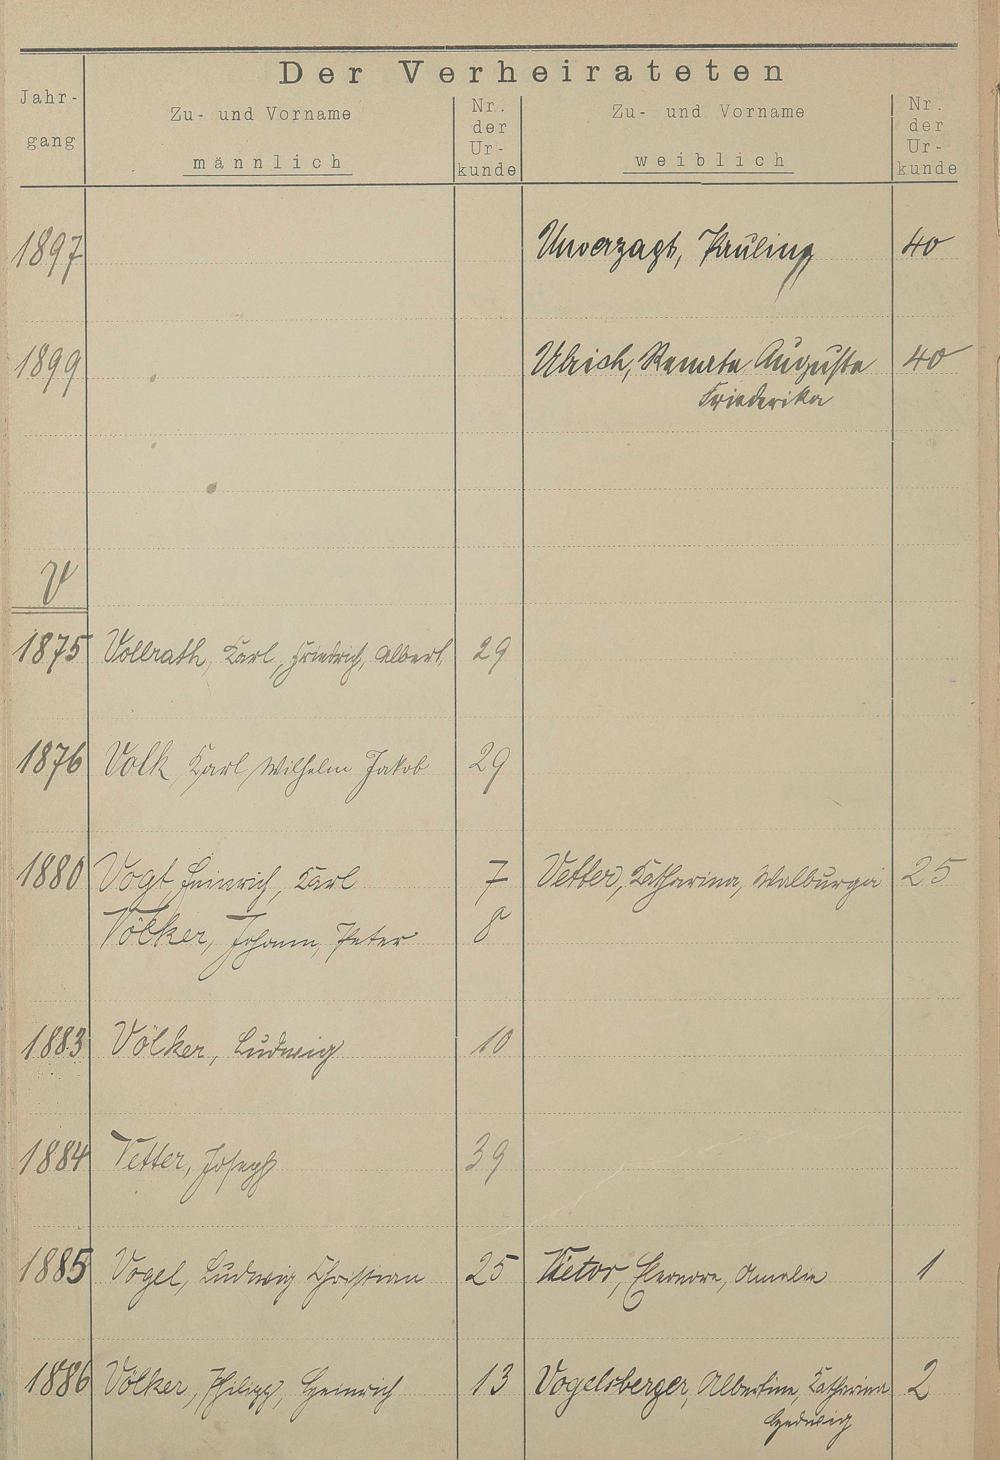 Der Verheirateten
Jahr-
gang
Zu- und Vorname
männlich
Nr.
der
Ur-
kunde
Zu- und Vorname
weiblich
Nr.
der
Ur-
kunde
1897 Unverzagt, Pauline 40
1899 Ulrich, Renate Auguste 40
Friederika
V
1875 Vollrath, Karl, Friedrich, Albert 29
1876 Volk Karl Wilhelm Jakob 29
1880 Vogt Heinrich, Karl 7 Vetter, Katharina, Walburga 25
Völker, Johann, Peter 8
1883 Völker, Ludwig 10
1884 Vetter, Joseph 39
1885 Vogel, Ludwig Christian 25 Vietor, Eleonore, Amalie 1
1886 Völker, Philipp, Heinrich 13 Vogelsberger, Albertine, Katharina 2
Hedwig